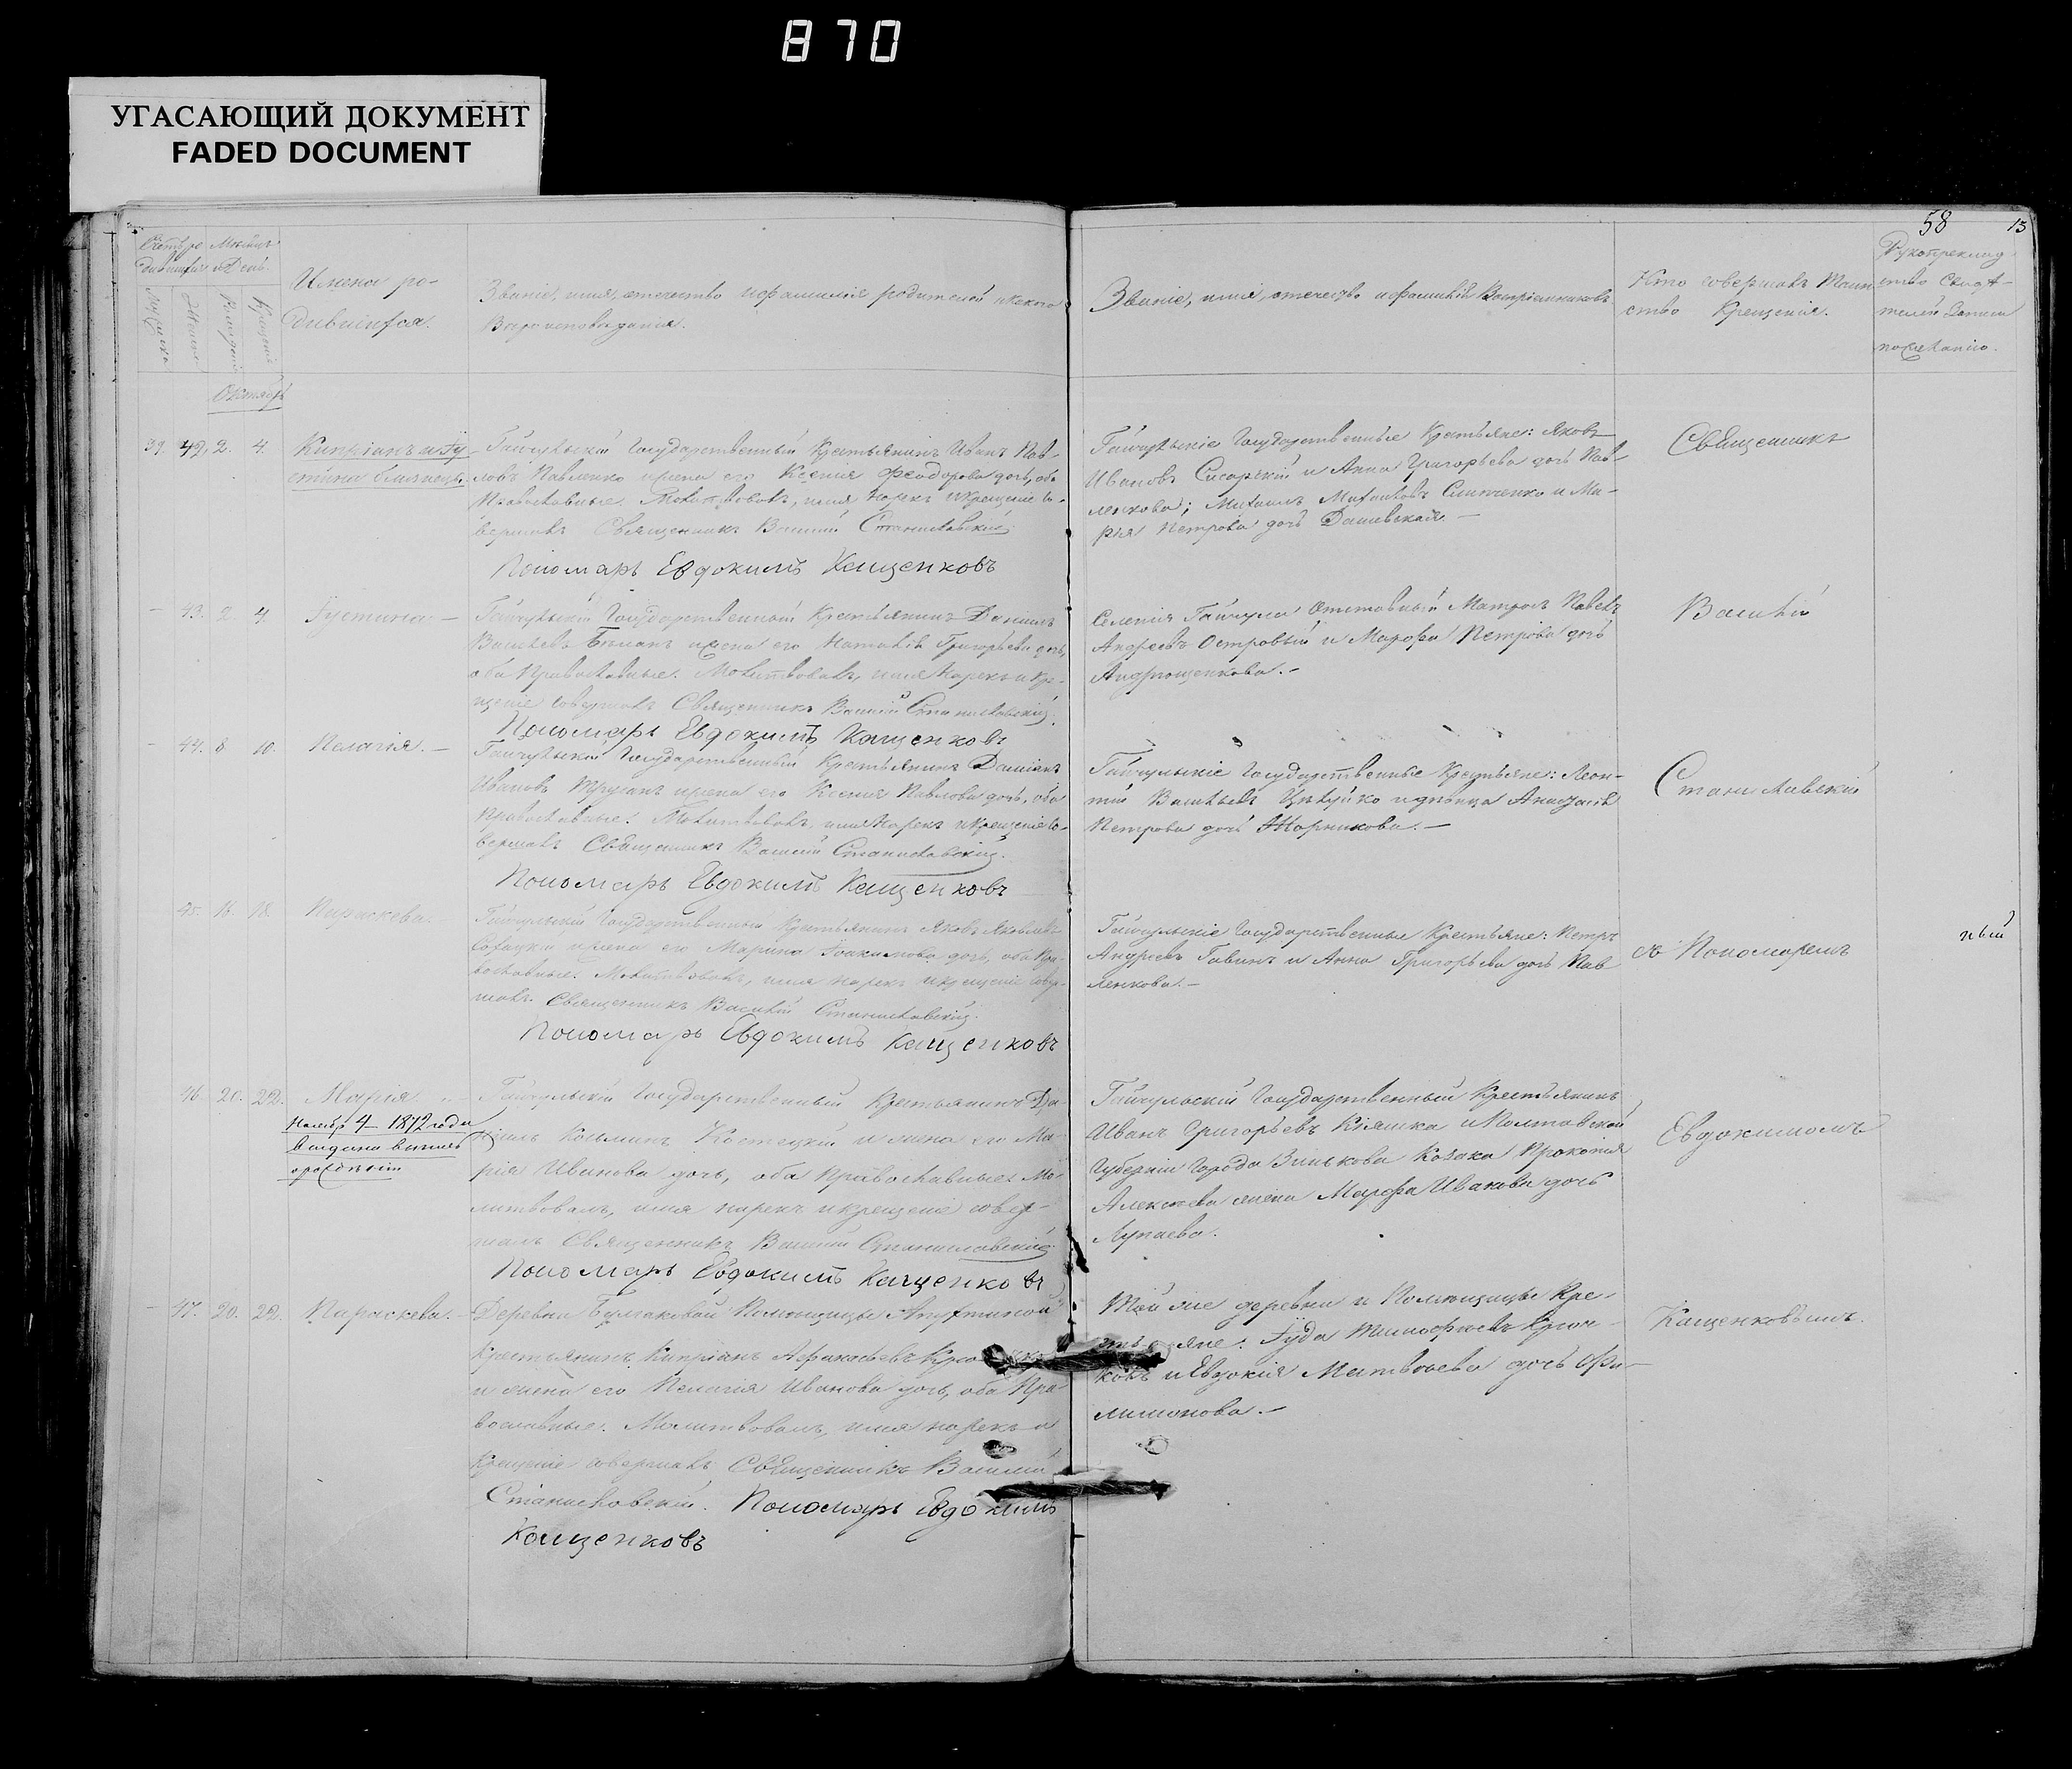 870
УГАСАЮЩИЙ ДОКУМЕНТ
FADED DOCUMENT
58
13
Имена ро-
дившихся.
Званіе, имя, отечество и фамилія родителей и какого
Вѣроисповѣданія.
Званіе, имя, отечество и фамилія Воспріемниковъ
Кто совершалъ Таин-
ство Крещенія.
Октябрь
39. 42. 2. 4.
Кипріанъ и Іу-
стина близнецы.
Гайчульскій Государственный Крестьянинъ Иванъ Пав-
ловъ Павленко и жена его Ксенія Феодорова дочь, оба
Православные. Молитвовалъ, имя нарекъ и крещеніе со-
вершалъ Священникъ Василій Станиславскій
Пономарь Евдокимъ Кащенковъ
Гайчульскіе Государственные Крестьяне: Яковъ
Ивановъ Сисарскій и Анна Григорьева дочь Пав-
ленкова; Михаилъ Михайловъ Слипченко и Ма-
рья Петрова дочь Дашевская.
Священникъ
43. 2. 4.
Іустина.
Гайчульскій Государственный Крестьянинъ Даніилъ
Васильевъ Бѣланъ и жена его Наталія Григорьева дочь,
оба Православные. Молитвовалъ, имя нарекъ и кре-
щеніе совершалъ Священникъ Василій Станиславскій.
Пономарь Евдокимъ Кащенковъ
Селенія Гайчула Отставный Матросъ Павелъ
Андреевъ Островый и Марфа Петрова дочь
Андрющенкова.
Василій
44. 8. 10.
Пелагія.
Гайчульскій Государственный Крестьянинъ Даміанъ
Ивановъ Труханъ и жена его Ксенія Павлова дочь, оба
Православные. Молитвовалъ, имя нарекъ и крещеніе со-
вершалъ Священникъ Василій Станиславскій.
Пономарь Евдокимъ Кащенковъ
Гайчульскіе Государственные Крестьяне: Леон-
тій Васильевъ и дѣвица Анастасія
Петрова дочь Жорникова.
Станиславскій
45. 16. 18.
Параскева.
Гайчульскій Государственный Крестьянинъ Яковъ Яковлевъ
и жена его Марина Іоакимова дочь, оба Пра-
вославные. Молитвовалъ, имя нарекъ и крещеніе совер-
шалъ Священникъ Василій Станиславскій.
Пономарь Евдокимъ Кащенковъ
Гайчульскіе Государственные Крестьяне: Петръ
Андреевъ Гавинъ и Анна Григорьева дочь Пав-
ленкова.
съ Пономаремъ
ный
46. 20. 22.
Марія.
Ноября 4 1872 года
выдана выпись
о рожденіи
Гайчульскій Государственный Крестьянинъ Да-
ніилъ Косминъ Костецкій и жена его Ма-
рія Иванова дочь, оба Православные. Мо-
литвовалъ, имя нарекъ и крещеніе совер-
шалъ Священникъ Василій Станиславскій
Пономарь Евдокимъ Кащенковъ
Гайчульскій Государственный Крестьянинъ
Иванъ Григорьевъ Кіяшка и Полтавской
Губерніи Города Зинькова Козака Прокопія
Алексѣева жена Марфа Иванова дочь
Лупаева.
Евдокимомъ
47. 20. 22.
Параскева.
Деревни Помѣщицы
Крестьянинъ Кипріанъ Афанасьевъ
и жена его Пелагія Иванова дочь, оба Пра-
вославные. Молитвовалъ, имя нарекъ и
Крещеніе совершалъ Священникъ Василій
Станиславскій. Пономарь Евдокимъ
Кащенковъ
Той же деревни и Помѣщицы Кре-
стьяне: Іуда Тимофѣевъ Крюч-
ковъ и Евдокія Матвѣева дочь Фи-
лимонова.
Кащенковымъ.